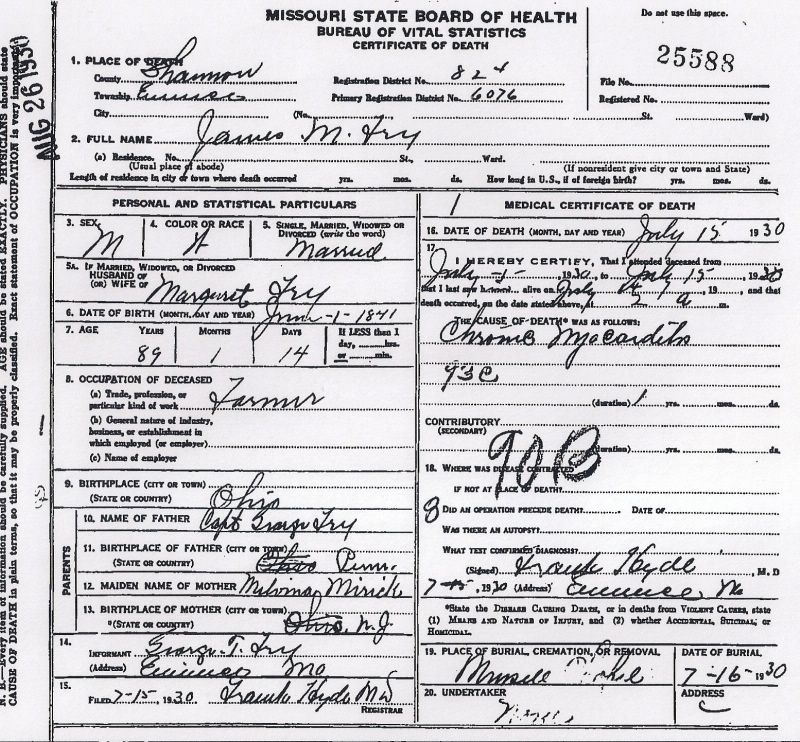 MISSOURI STATE BOARD OF HEALTH
BUREAU OF VITAL STATISTICS
CERTIFICATE OF DEATH
Do not use this space.
25588
AUG 26 1930
1. PLACE OF DEATH
County Shannon
Township Eminence
City (No.
Registration District No. 824
Primary Registration District No. 6076
File No.
Registered No.
St. Ward)
2. FULL NAME James M. Fry
(a) Residence. No. St., Ward.
(Usual place of abode) (If nonresident give city or town and State)
Length of residence in city or town where death occurred yrs. mos. ds. How long in U.S., if of foreign birth? yrs. mos. ds.
PERSONAL AND STATISTICAL PARTICULARS
3. SEX M
4. COLOR OR RACE
5. SINGLE, MARRIED, WIDOWED OR DIVORCED (write the word)
Married
5A. IF MARRIED, WIDOWED, OR DIVORCED
HUSBAND OF
(OR) WIFE OF Margaret Fry
6. DATE OF BIRTH (MONTH, DAY AND YEAR) June-1-1841
7. AGE YEARS MONTHS DAYS If LESS than 1
day, hrs.
or min.
89 1 14
8. OCCUPATION OF DECEASED
(a) Trade, profession, or
particular kind of work Farmer
(b) General nature of industry,
business, or establishment in
which employed (or employer)
(c) Name of employer
9. BIRTHPLACE (CITY OR TOWN)
(STATE OR COUNTRY) Ohio
PARENTS
10. NAME OF FATHER Capt George Fry
11. BIRTHPLACE OF FATHER (CITY OR TOWN)
(STATE OR COUNTRY) Ohio Penn.
12. MAIDEN NAME OF MOTHER Mirick
13. BIRTHPLACE OF MOTHER (CITY OR TOWN)
(STATE OR COUNTRY) Ohio. N.J.
14.
INFORMANT George T. Fry
(Address) Eminence Mo
15.
FILED 7-15, 1930 Frank Hyde MD
REGISTRAR
1 MEDICAL CERTIFICATE OF DEATH
16. DATE OF DEATH (MONTH, DAY AND YEAR) July 15 1930
17
I HEREBY CERTIFY, That I attended deceased from
July 1930, to July 15, 1930
that I last saw h alive on July, 19, and that
death occurred, on the date stated above, at m.
THE CAUSE OF DEATH* WAS AS FOLLOWS:
Chronic Myocarditis
93C
(duration) 1 yrs. mos. ds.
CONTRIBUTORY
(SECONDARY)
90B
(duration) yrs. mos. ds.
18. WHERE WAS DISEASE CONTRACTED
IF NOT AT PLACE OF DEATH?
8 DID AN OPERATION PRECEDE DEATH? DATE OF
WAS THERE AN AUTOPSY?
WHAT TEST CONFIRMED DIAGNOSIS?
(Signed) Frank Hyde, M.D
7-15, 1930 (Address) Eminence Mo
*State the DISEASE CAUSING DEATH, or in deaths from VIOLENT CAUSES, state
(1) MEANS AND NATURE OF INJURY, and (2) whether ACCIDENTAL, SUICIDAL, or
HOMICIDAL.
19. PLACE OF BURIAL, CREMATION, OR REMOVAL
DATE OF BURIAL
7-16-1930
20. UNDERTAKER
ADDRESS
N. B.—Every item of information should be carefully supplied. AGE should be stated EXACTLY. PHYSICIANS should state
CAUSE OF DEATH in plain terms, so that it may be properly classified. Exact statement of OCCUPATION is very important.